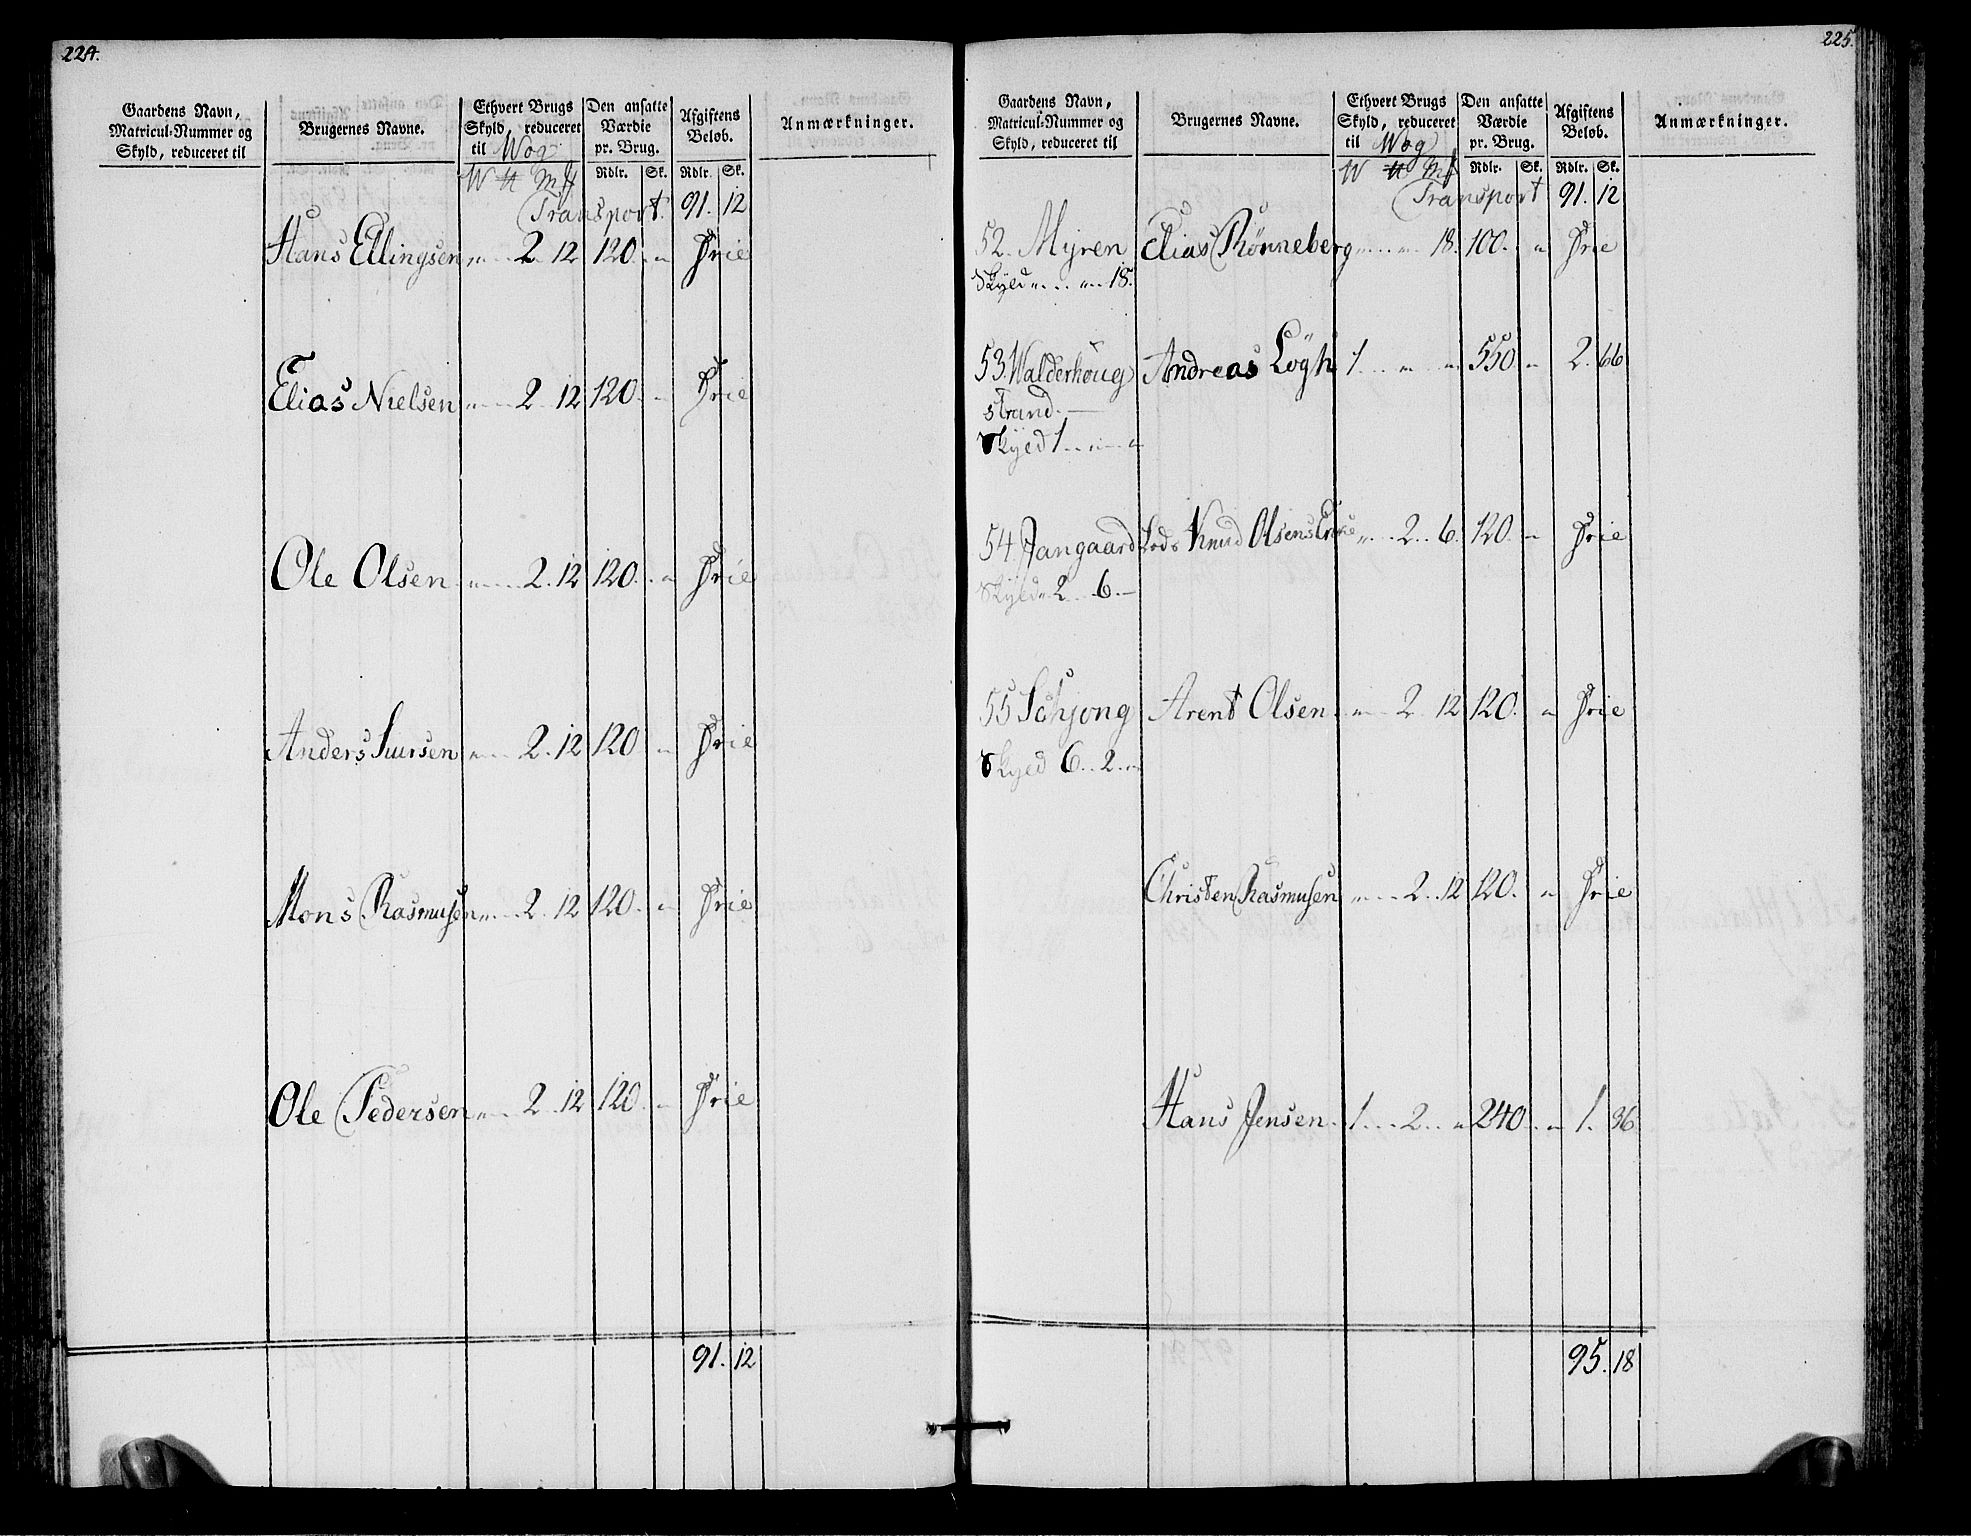 224.
Gaardens Navn, Matricul-Nummer og Skyld, reduceret til
Brugernes Navne.
Ethvert Brugs Skyld, reduceret til Wog
Den ansatte Værdie pr. Brug.
Afgiftens Beløb.
Anmærkninger.
W ℔ Mk Rdlr. Sk. Rdlr. Sk.
Transport. 91. 12
Hans Ellingsen „ 2 12 120. „ Frie
Elias Nielsen „ 2 12 120. „ Frie
Ole Olsen „ 2. 12 120. „ Frie
Anders Siursen „ 2. 12 120 „ Frie
Mons Rasmusen „ 2 12 120. „ Frie
Ole Pedersen „ 2 12 120. „ Frie
91. 12
225.
Gaardens Navn, Matricul-Nummer og Skyld, reduceret til
Brugernes Navne.
Ethvert Brugs Skyld, reduceret til Wog
Den ansatte Værdie pr. Brug.
Afgiftens Beløb.
Anmærkninger.
W ℔ Mk Rdlr. Sk. Rdlr. Sk.
Transport 91. 12
52. Myren Elias Rønneberg „ „ 18. 100. „ Frie
Skyld „ „ 18.
53. Walderhoug Andreas Løgh 1 „ „ 550 „ 2. 66
strand.
Skyld 1 „ „
54 Jangaard Lods Knud Olsens Enke „ 2 6. 120. „ Frie
Skyld „ 2 6.
55 Schjong Arent Olsen „ 2 12 120. „ Frie
Skyld 6 2 „
Christen Rasmusen „ 2 12 120. „ Frie
Hans Jensen 1 2 „ 240 „ 1. 36
95. 18